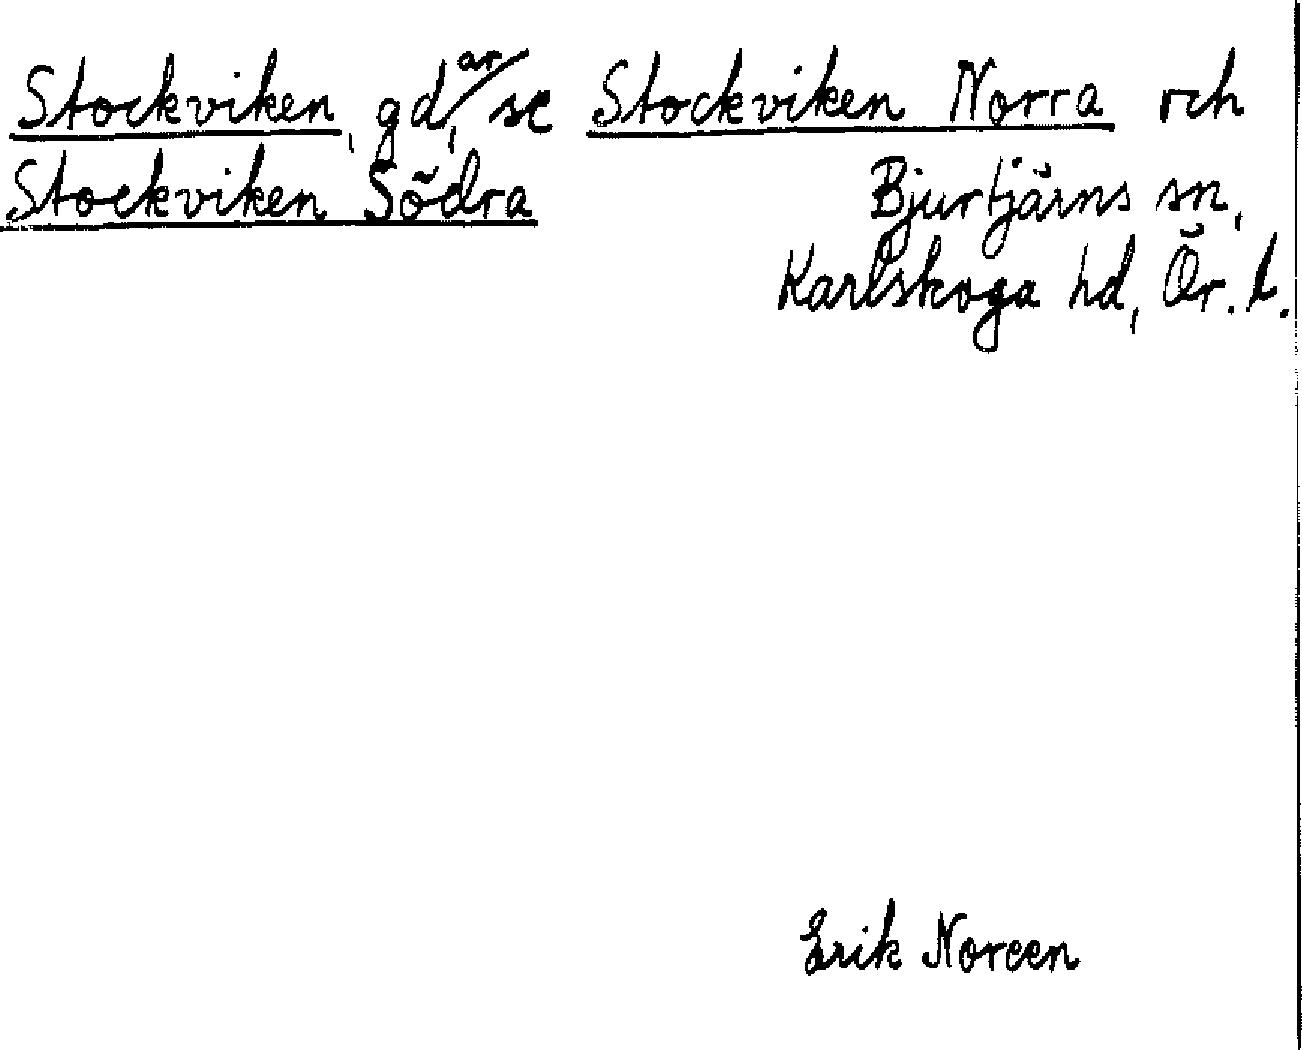 Stockviken, gdar, se Stockviken Norra och
Stockviken Södra
Bjurtjärns sn,
Karlskoga hd, Ör. l.
Erik Noreen